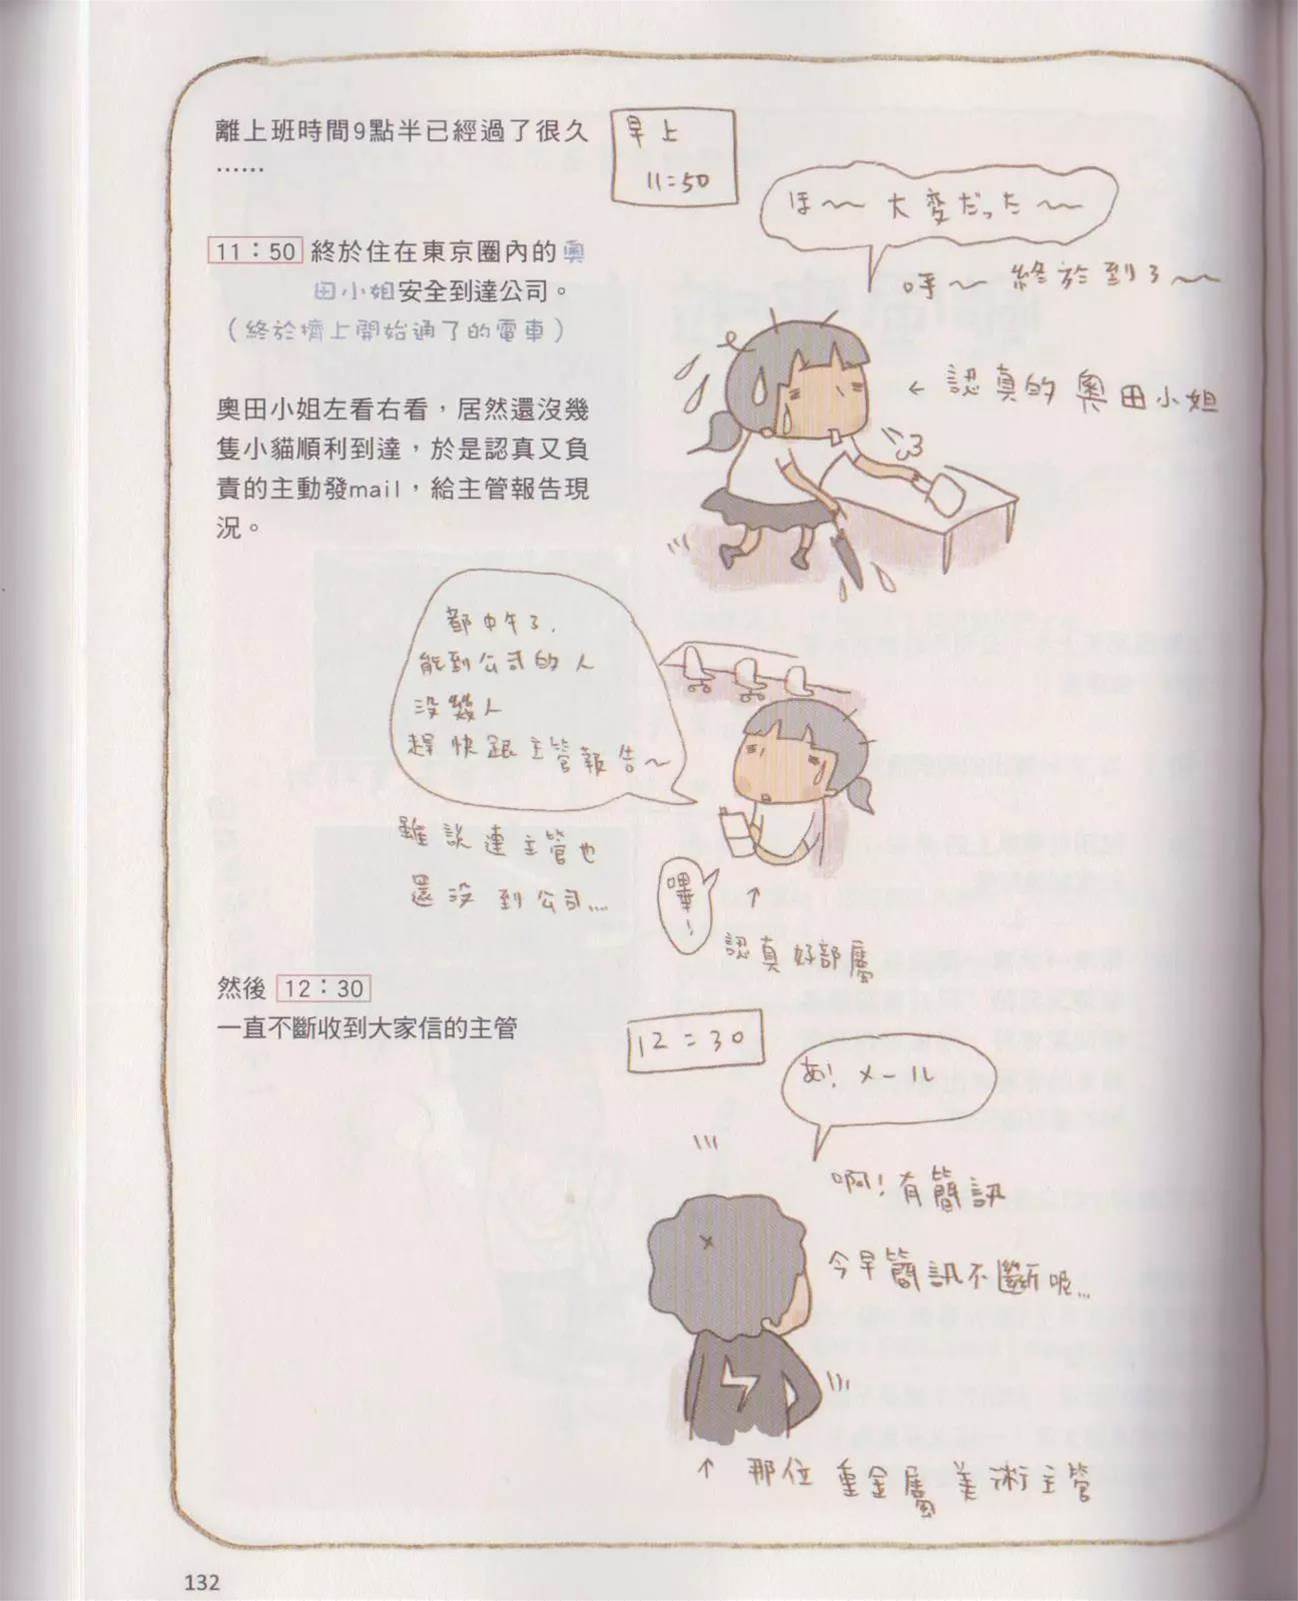 離上班時間9點半已經過了很久
……
早上
11:50
ほ～ 大変だった～
呼～ 終於到了～
11：50 終於住在東京圈內的奧
田小姐安全到達公司。
（終於擠上開始通了的電車）
← 認真的 奧田小姐
奧田小姐左看右看，居然還沒幾
隻小貓順利到達，於是認真又負
責的主動發mail，給主管報告現
況。
都中午了，
能到公司的人
沒幾人
趕快跟主管報告～
雖說連主管也
還沒到公司...
嗶！
↑
認真好部屬
然後 12：30
一直不斷收到大家信的主管
12:30
あ! メール
啊! 有簡訊
今早簡訊不斷呢...
↑ 那位 重金屬 美術主管
132